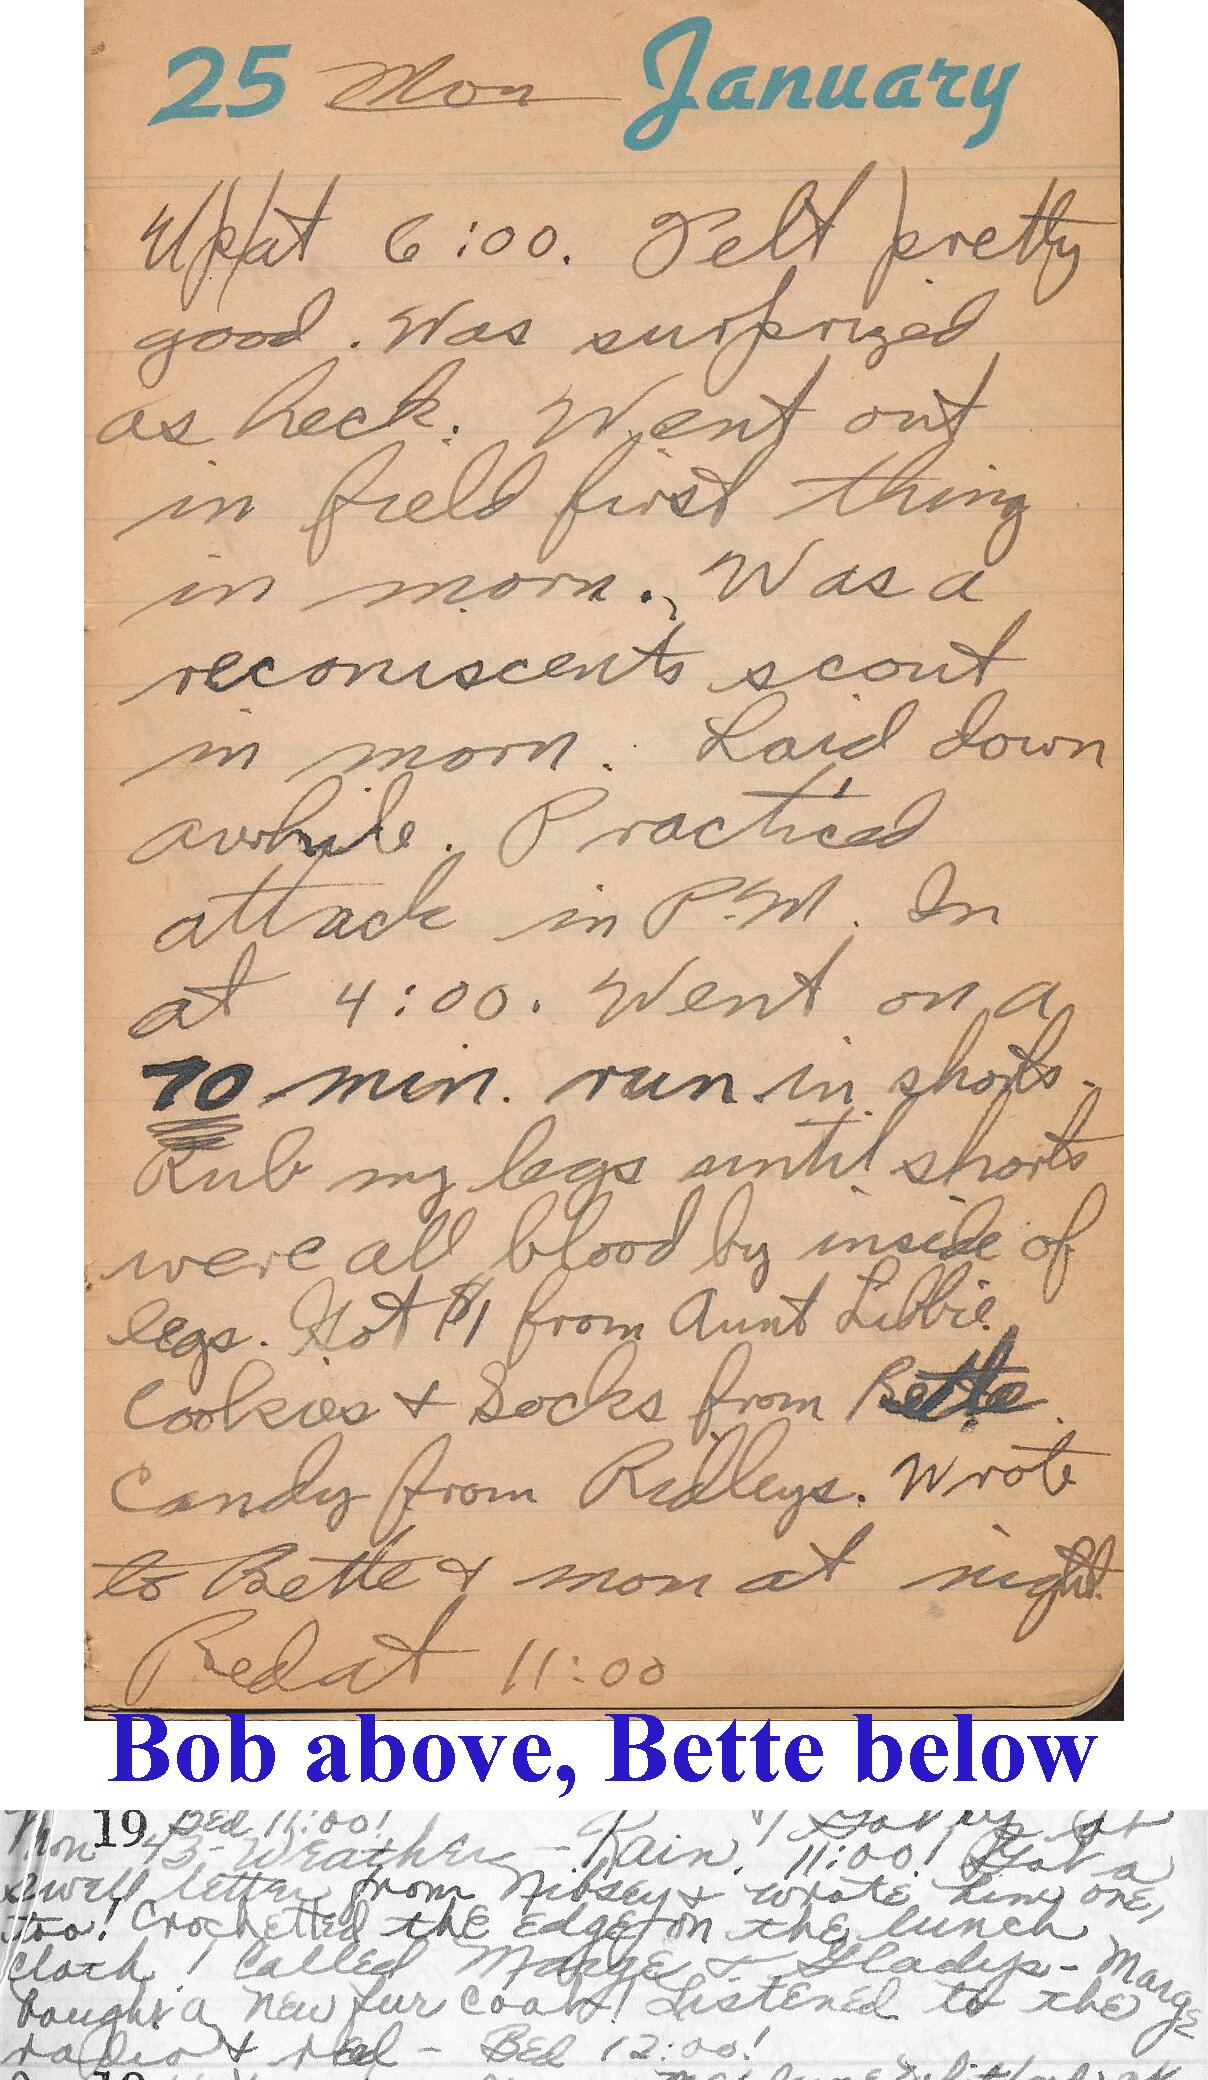 25 Mon January
Up at 6:00. Felt pretty
good. Was surprized
as heck. Went out
in field first thing
in morn. Was a
reconiscents scout
in morn. Laid down
awhile. Practiced
attack in P.M. In
at 4:00. Went on a
70 min. run in shorts.
Rub my legs until shorts
were all blood by inside of
legs. Got $1 from Aunt Libbie.
Cookies & Socks from Bette.
Candy from Ridleys. Wrote
to Bette & mom at night.
Bed at 11:00
Bob above, Bette below
19 Bed 11:00!
Mon 43 - Weather - Rain. Got up at 11:00! Got a
swell letter from Nibsey & wrote him one,
too! Crochetted the edge on the lunch
cloth! Called Marge & Gladys - Marge
bought a new fur coat! Listened to the
radio & read - Bed 12:00!
19